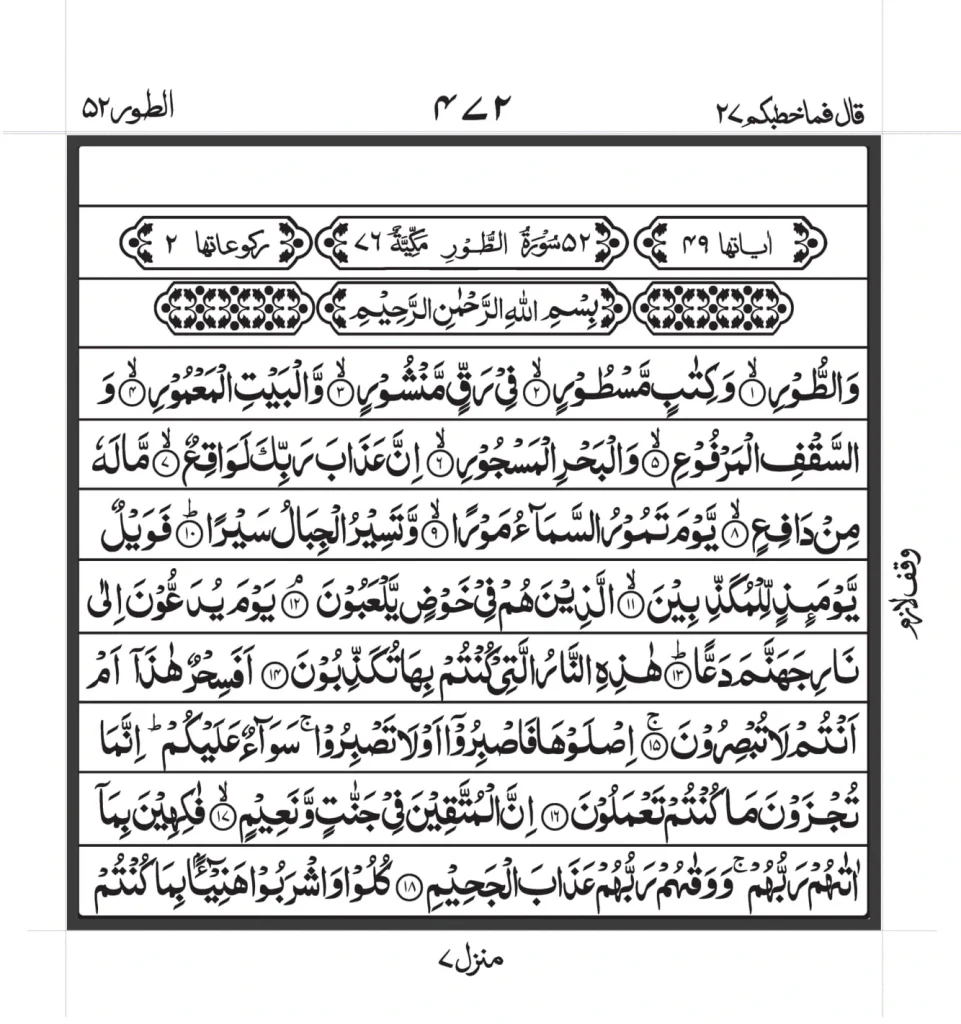 قال فما خطبكم ٢٧ ٤٧٢ الطور ٥٢
اٰیاتها ٤٩ ٥٢ سُوْرَةُ الطُّوْرِ مَكِّیَّةٌ ٧٦ ركوعاتها ٢
بِسْمِ اللهِ الرَّحْمٰنِ الرَّحِیْمِ
وَالطُّوْرِ ۙ‏﴿۱﴾ وَكِتٰبٍ مَّسْطُوْرٍ ۙ‏﴿۲﴾ فِیْ رَقٍّ مَّنْشُوْرٍ ۙ‏﴿۳﴾ وَّالْبَیْتِ الْمَعْمُوْرِ ۙ‏﴿۴﴾ وَ
السَّقْفِ الْمَرْفُوْعِ ۙ‏﴿۵﴾ وَالْبَحْرِ الْمَسْجُوْرِ ۙ‏﴿۶﴾ اِنَّ عَذَابَ رَبِّكَ لَوَاقِعٌ ۙ‏﴿۷﴾ مَّا لَهٗ
مِنْ دَافِعٍ ۙ‏﴿۸﴾ یَّوْمَ تَمُوْرُ السَّمَآءُ مَوْرًا ۙ‏﴿۹﴾ وَّتَسِیْرُ الْجِبَالُ سَیْرًا ؕ‏﴿۱۰﴾ فَوَیْلٌ
یَّوْمَىِٕذٍ لِّلْمُكَذِّبِیْنَ ۙ‏﴿۱۱﴾ الَّذِیْنَ هُمْ فِیْ خَوْضٍ یَّلْعَبُوْنَ ۘ‏﴿۱۲﴾ یَوْمَ یُدَعُّوْنَ اِلٰی
نَارِ جَهَنَّمَ دَعًّا ؕ‏﴿۱۳﴾ هٰذِهِ النَّارُ الَّتِیْ كُنْتُمْ بِهَا تُكَذِّبُوْنَ ﴿۱۴﴾ اَفَسِحْرٌ هٰذَاۤ اَمْ
اَنْتُمْ لَا تُبْصِرُوْنَ ۚ‏﴿۱۵﴾ اِصْلَوْهَا فَاصْبِرُوْۤا اَوْ لَا تَصْبِرُوْا ۚ سَوَآءٌ عَلَیْكُمْ ؕ اِنَّمَا
تُجْزَوْنَ مَا كُنْتُمْ تَعْمَلُوْنَ ﴿۱۶﴾ اِنَّ الْمُتَّقِیْنَ فِیْ جَنّٰتٍ وَّنَعِیْمٍ ۙ‏﴿۱۷﴾ فٰكِهِیْنَ بِمَاۤ
اٰتٰىهُمْ رَبُّهُمْ ۚ وَوَقٰىهُمْ رَبُّهُمْ عَذَابَ الْجَحِیْمِ ﴿۱۸﴾ كُلُوْا وَاشْرَبُوْا هَنِیْٓـًٔۢا بِمَا كُنْتُمْ
وقف لازم
منزل ٧